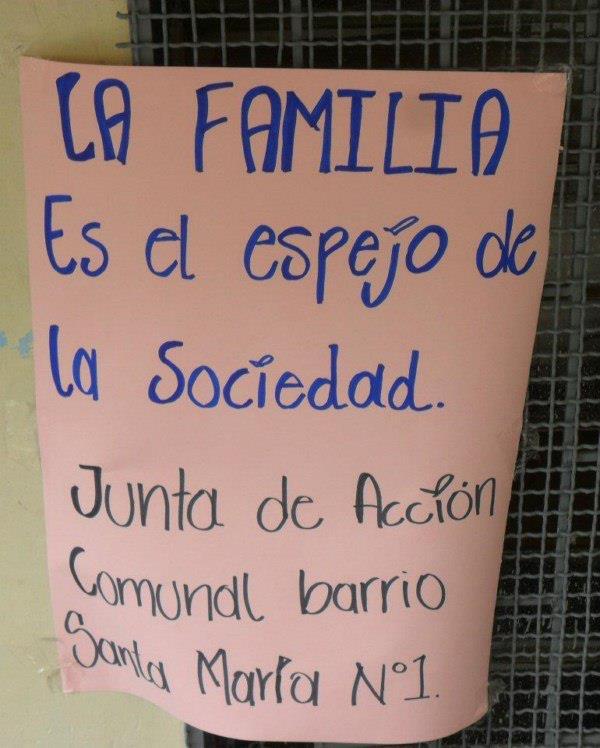 LA FAMILIA
Es el espejo de
la Sociedad.
Junta de Acción
Comunal barrio
Santa María N°1.